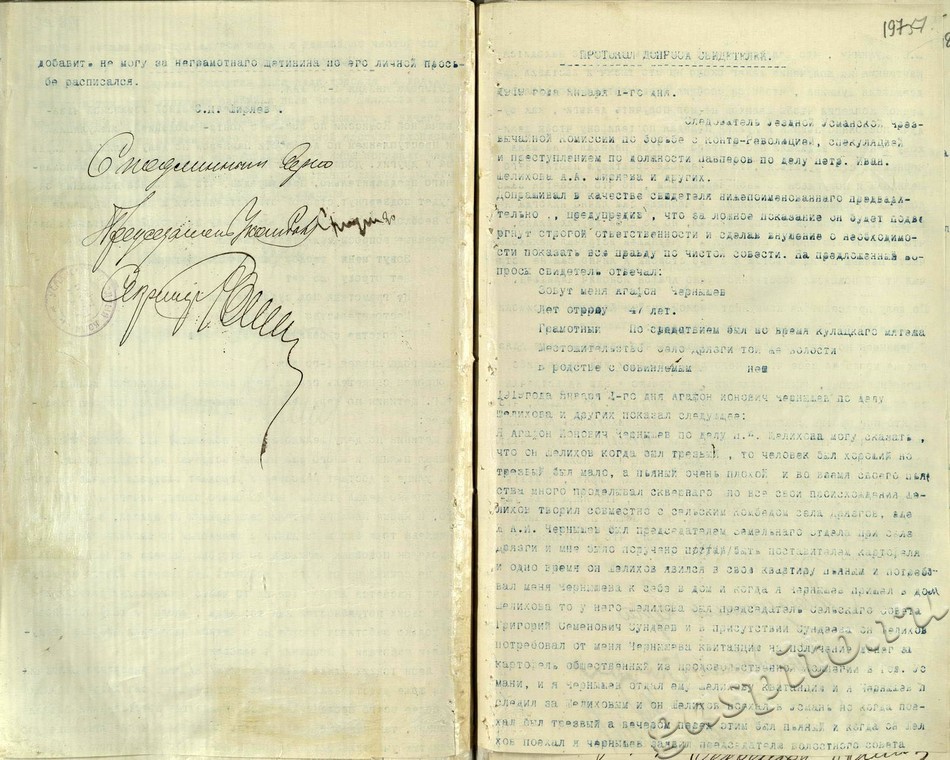 добавить не могу за неграмотнаго Щетинина по его личной прось-
бе расписался.
С подлинным верно
Председатель
Секретарь
1975
ПРОТОКОЛ ДОПРОСА СВИДЕТЕЛЕЙ.
1919года Января 1-го дня.
Следователь Уездной Усманской Чрез-
вычайной Комиссии по борьбе с Контр-Революцией, спекуляцией
и преступлением по должности по делу Петр. Иван.
Шелихова и других.
Допрашивал в качестве свидетеля нижепоименованнаго предвари-
тельно , предупредив , что за ложное показание он будет подве
ргнут строгой ответственности и сделав внушение о необходимо-
сти показать всю правду по чистой совести. На предложенные во-
просы свидетель отвечал:
Зовут меня Агафон Чернышев
Лет 47 лет.
Грамотный был во время кулацкаго мятежа
местожительство село Дрязги той же волости
в родстве с обвиняемым
1919года Января 1-го дня Агафон Ионович Чернышев по делу
Шелихова и других показал следующее:
Я Агафон Ионович Чернышев по делу Шелихова могу сказать ,
что он Шелихов когда был трезвый , то человек был хороший но
трезвый был мало, а пьяный очень плохой и во время своего пьян
ства много проделывал сквернаго но все свои происхождения Ше-
лихов творил совместно с сельским комбедом села Дрязгов, где
я А.И. Чернышев был председателем Земельнаго отдела при селе
Дрязги и мне было поручено быть поставителем картофеля
и одно время он Шелихов явился в свою квартиру пьяным и потребо-
вал меня Чернышева к себе в дом и когда я Чернышев пришел в дом
Шелихова то у него Шелихова был председатель Сельскаго Совета
Григорий Семенович Сундеев и в присутствии Сундеева он Шелихов
потребовал от меня Чернышева квитанцию на получение денег за
картофель общественный из продовольственной в гор. Ус
мани, и я Чернышев отдал ему Шелихову квитанцию и я Чернышев п
следил за Шелиховым и он Шелихов поехал в Усмань но когда пое-
хал был трезвый а вечером перед этим был пьяный и когда он Шел
хов поехал я Чернышев председателя волостного совета